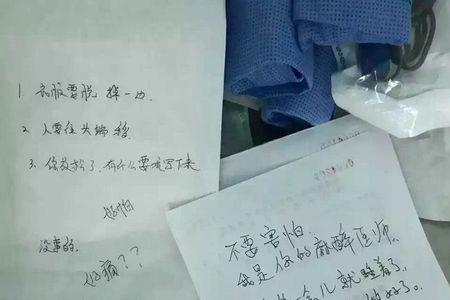 1 衣服要脱掉一边.
2. 人要往头端移.
3. 你放松了,有什么要求写下来
好怕
没事的.
好痛??
不要害怕
我是你的麻醉医师.
会儿就睡着了.
好了。